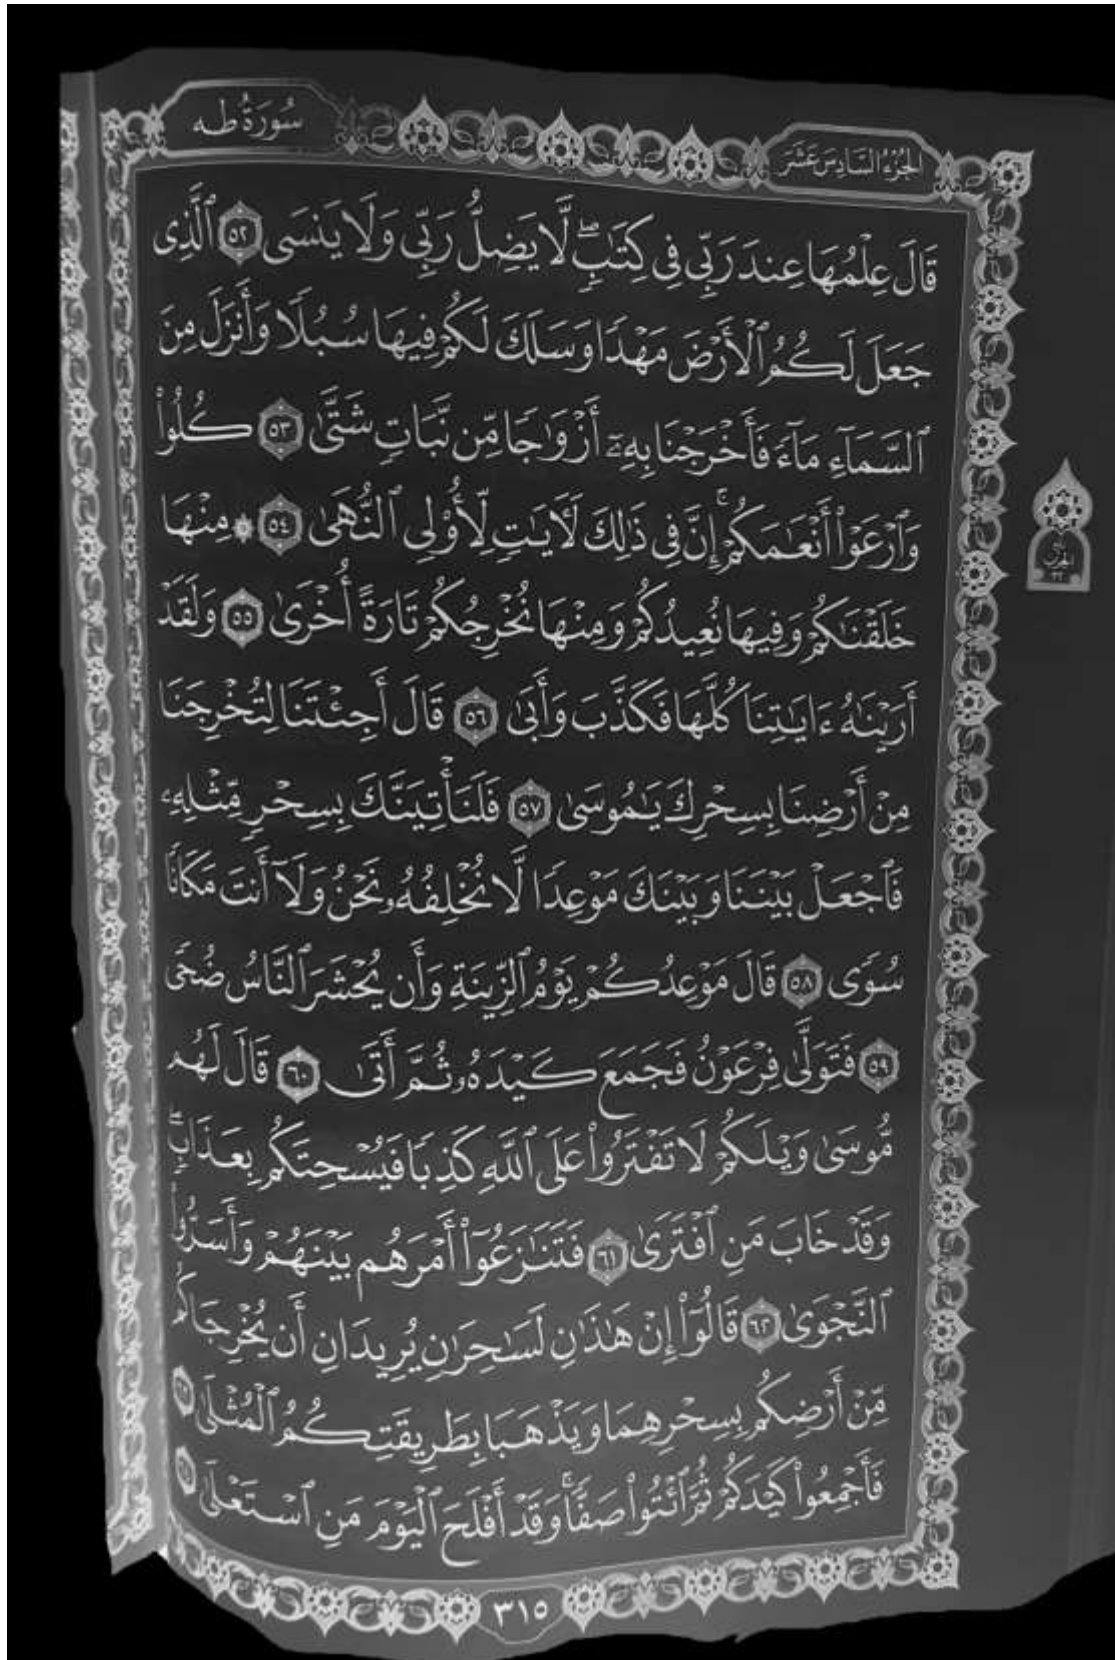 سُورَةُ طه
الجُزْءُ السَّادِسَ عَشَرَ
قَالَ عِلْمُهَا عِندَ رَبِّي فِي كِتَٰبٍۖ لَّا يَضِلُّ رَبِّي وَلَا يَنسَى ٥٢ ٱلَّذِي
جَعَلَ لَكُمُ ٱلْأَرْضَ مَهْدًا وَسَلَكَ لَكُمْ فِيهَا سُبُلًا وَأَنزَلَ مِنَ
ٱلسَّمَآءِ مَآءً فَأَخْرَجْنَا بِهِۦٓ أَزْوَٰجًا مِّن نَّبَاتٍ شَتَّىٰ ٥٣ كُلُوا۟
وَٱرْعَوْا۟ أَنْعَٰمَكُمْۚ إِنَّ فِي ذَٰلِكَ لَءَايَٰتٍ لِّأُو۟لِي ٱلنُّهَىٰ ٥٤ ۞ مِنْهَا
خَلَقْنَٰكُمْ وَفِيهَا نُعِيدُكُمْ وَمِنْهَا نُخْرِجُكُمْ تَارَةً أُخْرَىٰ ٥٥ وَلَقَدْ
أَرَيْنَٰهُ ءَايَٰتِنَا كُلَّهَا فَكَذَّبَ وَأَبَىٰ ٥٦ قَالَ أَجِئْتَنَا لِتُخْرِجَنَا
مِنْ أَرْضِنَا بِسِحْرِكَ يَٰمُوسَىٰ ٥٧ فَلَنَأْتِيَنَّكَ بِسِحْرٍ مِّثْلِهِۦ
فَٱجْعَلْ بَيْنَنَا وَبَيْنَكَ مَوْعِدًا لَّا نُخْلِفُهُۥ نَحْنُ وَلَآ أَنتَ مَكَانًا
سُوًى ٥٨ قَالَ مَوْعِدُكُمْ يَوْمُ ٱلزِّينَةِ وَأَن يُحْشَرَ ٱلنَّاسُ ضُحًى
٥٩ فَتَوَلَّىٰ فِرْعَوْنُ فَجَمَعَ كَيْدَهُۥ ثُمَّ أَتَىٰ ٦٠ قَالَ لَهُم
مُّوسَىٰ وَيْلَكُمْ لَا تَفْتَرُوا۟ عَلَى ٱللَّهِ كَذِبًا فَيُسْحِتَكُم بِعَذَابٍۖ
وَقَدْ خَابَ مَنِ ٱفْتَرَىٰ ٦١ فَتَنَٰزَعُوٓا۟ أَمْرَهُم بَيْنَهُمْ وَأَسَرُّوا۟
ٱلنَّجْوَىٰ ٦٢ قَالُوٓا۟ إِنْ هَٰذَٰنِ لَسَٰحِرَٰنِ يُرِيدَانِ أَن يُخْرِجَاكُم
مِّنْ أَرْضِكُم بِسِحْرِهِمَا وَيَذْهَبَا بِطَرِيقَتِكُمُ ٱلْمُثْلَىٰ ٦٣
فَأَجْمِعُوا۟ كَيْدَكُمْ ثُمَّ ٱئْتُوا۟ صَفًّاۚ وَقَدْ أَفْلَحَ ٱلْيَوْمَ مَنِ ٱسْتَعْلَىٰ ٦٤
٣١٥